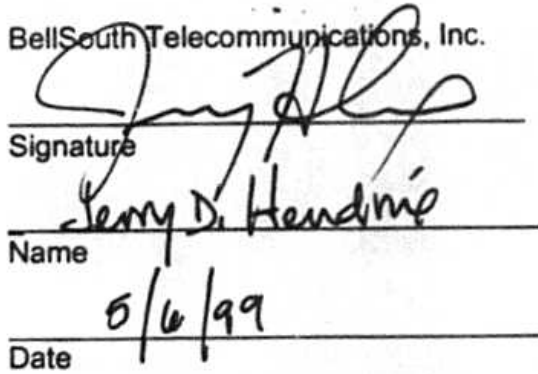 BellSouth Telecommunications, Inc.
Signature
Jerry D. Hendrix
Name
5/6/99
Date